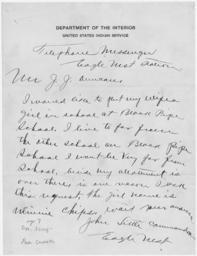 DEPARTMENT OF THE INTERIOR
UNITED STATES INDIAN SERVICE
Telephone Messenger
Eagle Nest Station
Mr J. J. Duncan
I would like to put my
girl in school at Board
School. I live to far from
the other school. on Board
School I wont be very far from
School, beside my allotment is
over there is one reason I ask
this request, the girl name is
Winnie Chips, wait your answer
John Little Commander
Eagle Nest